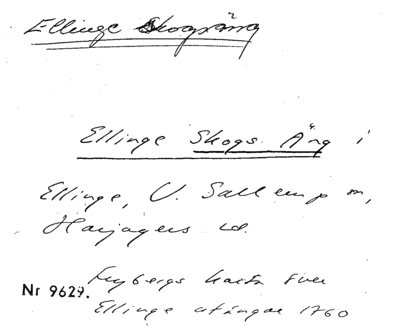 Ellinge Skogsäng
Ellinge Skogs Äng i
Ellinge, V. Sallerup sn,
Harjagers hd.
Frybergs karta över
Nr 9629. Ellinge utängar 1760